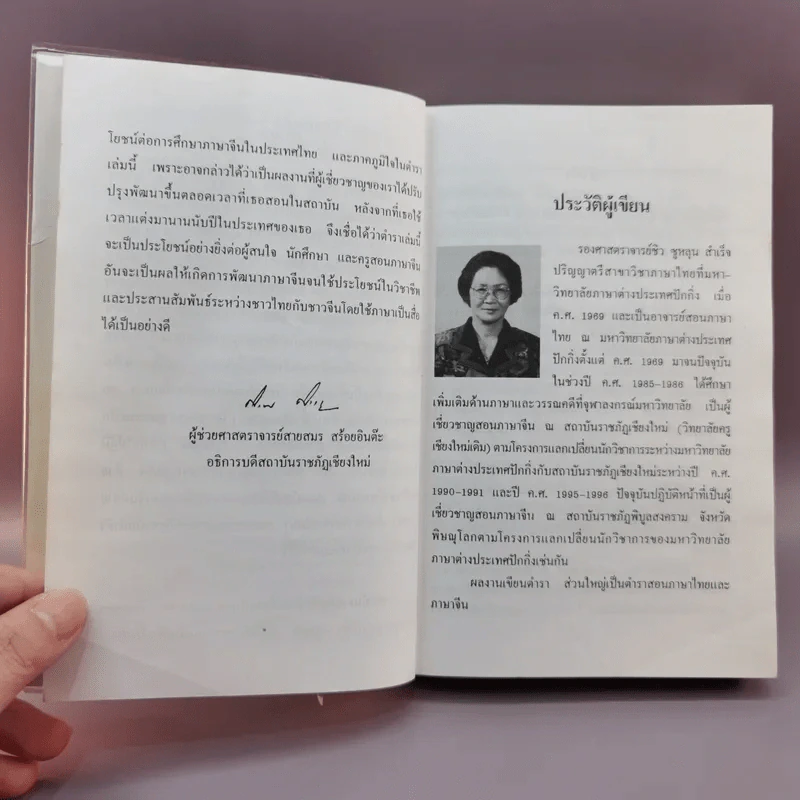 โยชน์ต่อการศึกษาภาษาจีนในประเทศไทย และภาคภูมิใจในตำรา
เล่มนี้ เพราะอาจกล่าวได้ว่าเป็นผลงานที่ผู้เชี่ยวชาญของเราได้ปรับ
ปรุงพัฒนาขึ้นตลอดเวลาที่เธอสอนในสถาบัน หลังจากที่เธอใช้
เวลาแต่งมานานนับปีในประเทศของเธอ จึงเชื่อได้ว่าตำราเล่มนี้
จะเป็นประโยชน์อย่างยิ่งต่อผู้สนใจ นักศึกษา และครูสอนภาษาจีน
อันจะเป็นผลให้เกิดการพัฒนาภาษาจีนจนใช้ประโยชน์ในวิชาชีพ
และประสานสัมพันธ์ระหว่างชาวไทยกับชาวจีนโดยใช้ภาษาเป็นสื่อ
ได้เป็นอย่างดี
ผู้ช่วยศาสตราจารย์สายสมร สร้อยอินต๊ะ
อธิการบดีสถาบันราชภัฏเชียงใหม่
ประวัติผู้เขียน
รองศาสตราจารย์ชิว ซูหลุน สำเร็จ
ปริญญาตรีสาขาวิชาภาษาไทยที่มหา-
วิทยาลัยภาษาต่างประเทศปักกิ่ง เมื่อ
ค.ศ. 1969 และเป็นอาจารย์สอนภาษา
ไทย ณ มหาวิทยาลัยภาษาต่างประเทศ
ปักกิ่งตั้งแต่ ค.ศ. 1969 มาจนปัจจุบัน
ในช่วงปี ค.ศ. 1985-1986 ได้ศึกษา
เพิ่มเติมด้านภาษาและวรรณคดีที่จุฬาลงกรณ์มหาวิทยาลัย เป็นผู้
เชี่ยวชาญสอนภาษาจีน ณ สถาบันราชภัฏเชียงใหม่ (วิทยาลัยครู
เชียงใหม่เดิม) ตามโครงการแลกเปลี่ยนนักวิชาการระหว่างมหาวิทยาลัย
ภาษาต่างประเทศปักกิ่งกับสถาบันราชภัฏเชียงใหม่ระหว่างปี ค.ศ.
1990-1991 และปี ค.ศ. 1995-1996 ปัจจุบันปฏิบัติหน้าที่เป็นผู้
เชี่ยวชาญสอนภาษาจีน ณ สถาบันราชภัฏพิบูลสงคราม จังหวัด
พิษณุโลกตามโครงการแลกเปลี่ยนนักวิชาการของมหาวิทยาลัย
ภาษาต่างประเทศปักกิ่งเช่นกัน
ผลงานเขียนตำรา ส่วนใหญ่เป็นตำราสอนภาษาไทยและ
ภาษาจีน